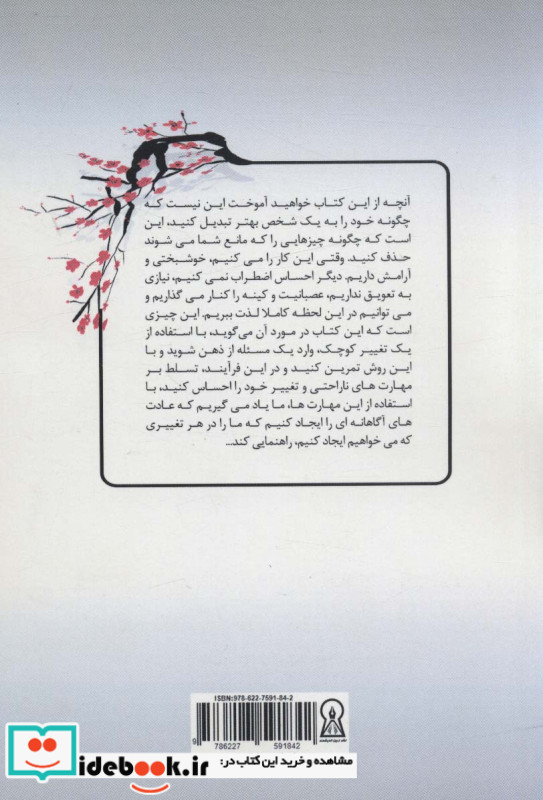 آنچه از این کتاب خواهید آموخت این نیست که
چگونه خود را به یک شخص بهتر تبدیل کنید، این
است که چگونه چیزهایی را که مانع شما می شوند
حذف کنید. وقتی این کار را می کنیم، خوشبختی و
آرامش داریم. دیگر احساس اضطراب نمی کنیم، نیازی
به تعویق نداریم، عصبانیت و کینه را کنار می گذاریم و
می توانیم در این لحظه کاملا لذت ببریم. این چیزی
است که این کتاب در مورد آن می‌گوید، با استفاده از
یک تغییر کوچک، وارد یک مسئله از ذهن شوید و با
این روش تمرین کنید و در این فرآیند، تسلط بر
مهارت های ناراحتی و تغییر خود را احساس کنید، با
استفاده از این مهارت ها، ما یاد می گیریم که عادت
های آگاهانه ای را ایجاد کنیم که ما را در هر تغییری
که می خواهیم ایجاد کنیم، راهنمایی کند...
ISBN:978-622-7591-84-2
9 786227 591842
مشاهده و خرید این کتاب در:
idebook.ir